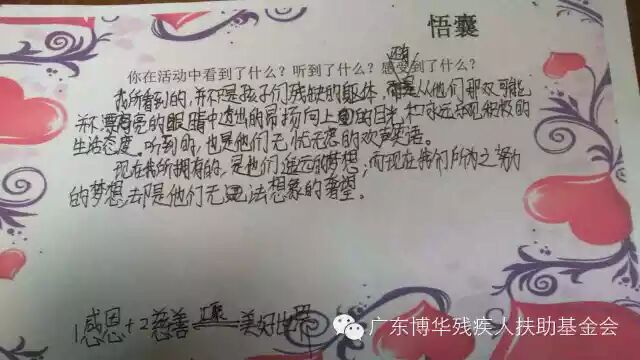 悟囊
你在活动中看到了什么？听到了什么？感受到了什么？
我所看到的，并不是孩子们残缺的躯体，而是从他们那双可能
并不漂亮的眼睛中透出的昂扬向上的目光，和永远乐观积极的
生活态度。听到的，也是他们无忧无虑的欢声笑语。
现在我所拥有的，是他们遥远的梦想；而现在我们所为之努力
的梦想，却是他们无法想象的奢望。
1感恩+2慈善 美好世界
广东博华残疾人扶助基金会